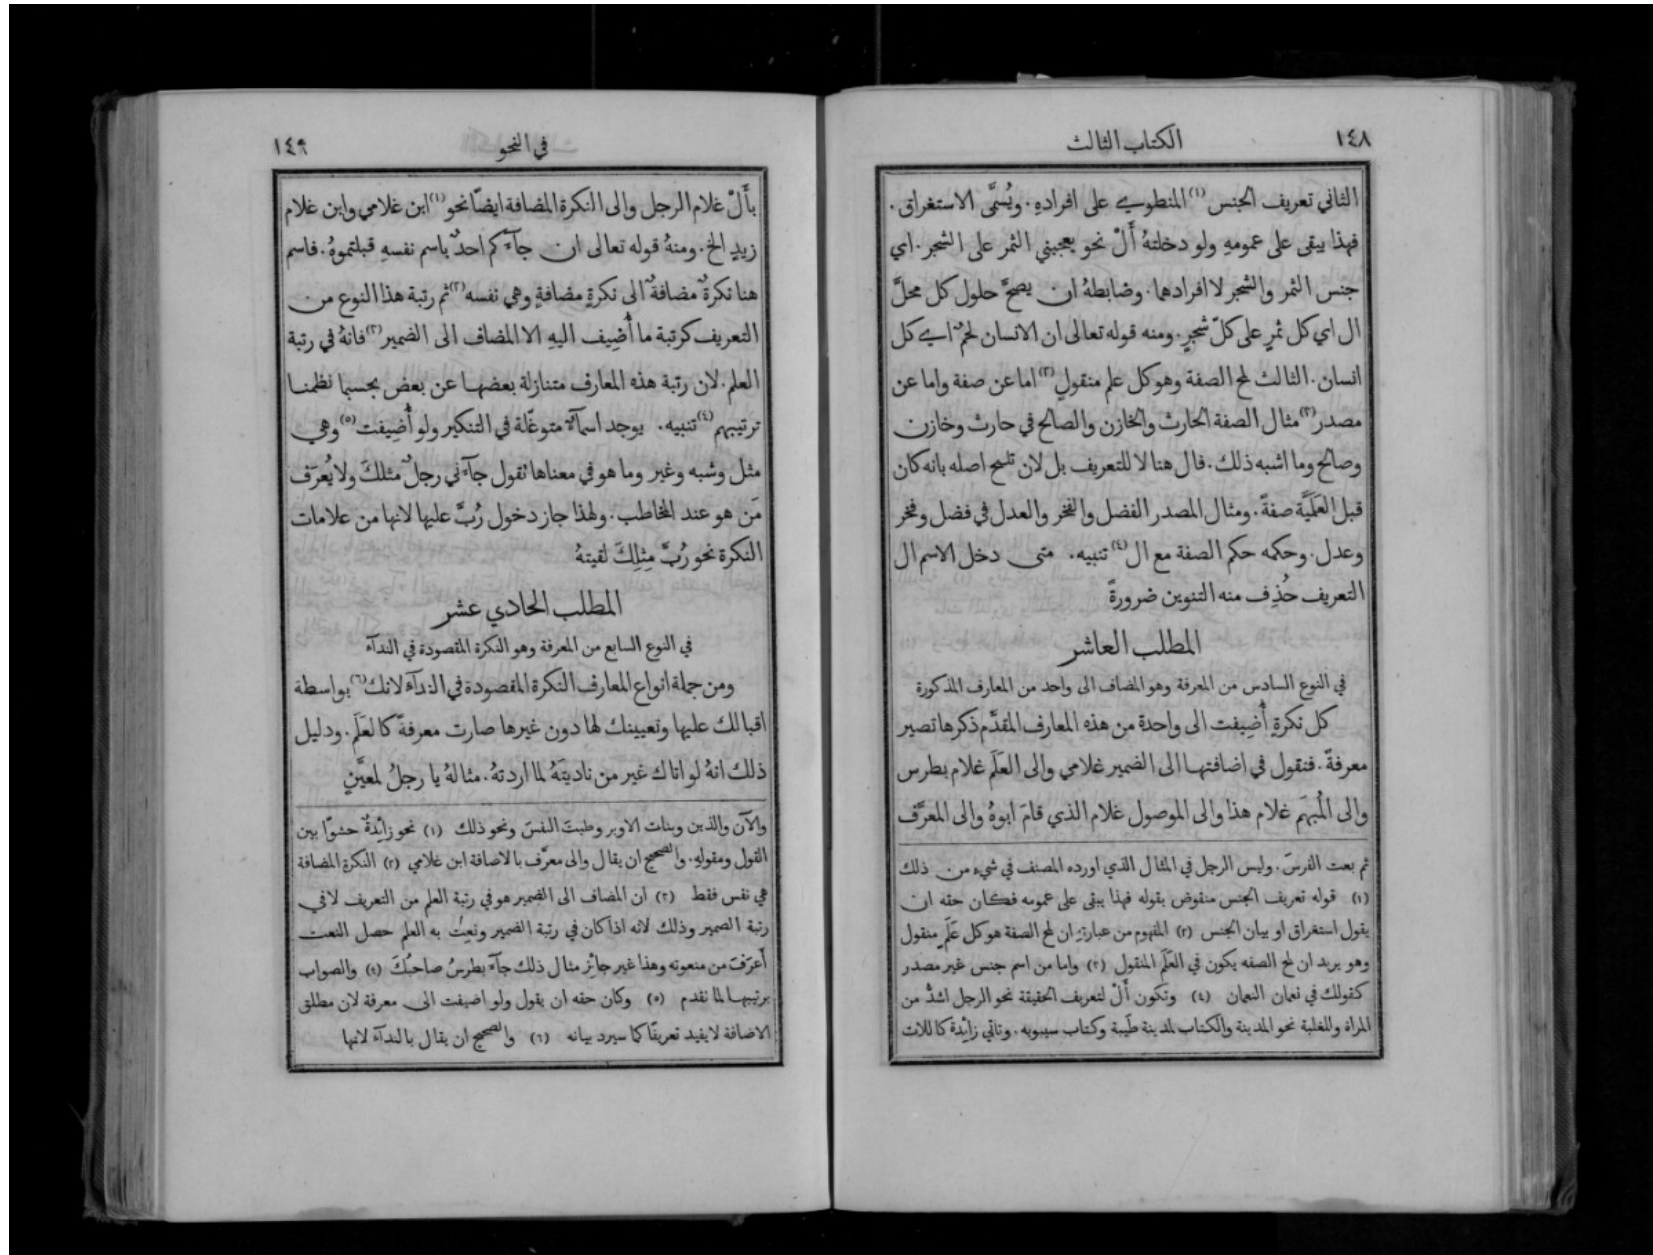 ١٤٨
الكتاب الثالث
الثاني تعريف الجنس (١) المنطوي على افرادهِ. ويُسَمَّى الاستغراق.
فهذا يبقى على عمومهِ ولو دخلتهُ أَلْ نحو يعجبني الثمر على الشجر. اي
جنس الثمر والشجر لا افرادهما. وضابطهُ ان يصحَّ حلول كل محلَّ
ال اي كل ثمرٍ على كلّ شجرٍ. ومنه قوله تعالى ان الانسان لحمٌ اي كل
انسان. الثالث لمح الصفة وهو كل علم منقولٍ (٢) اما عن صفة واما عن
مصدر (٣) مثال الصفة الحارث والخازن والصالح في حارث وخازن
وصالح وما اشبه ذلك. فال هنا لا للتعريف بل لان تلمح اصله بانه كان
قبل العَلَميَّة صفةً. ومثال المصدر الفضل والفخر والعدل في فضل وفخر
وعدل. وحكمه حكم الصفة مع ال (٤) تنبيه. متى دخل الاسم ال
التعريف حُذِف منه التنوين ضرورةً
المطلب العاشر
في النوع السادس من المعرفة وهو المضاف الى واحد من المعارف المذكورة
كل نكرةٍ أُضِيفت الى واحدة من هذه المعارف المقدَّم ذكرها تصير
معرفةً. فنقول في اضافتها الى الضمير غلامي والى العَلَم غلام بطرس
والى المُبهَم غلام هذا والى الموصول غلام الذي قامَ ابوهُ والى المعرَّف
ثم بعت الفرسَ. وليس الرجل في المثال الذي اورده المصنف في شيء من ذلك
(١) قوله تعريف الجنس منقوض بقوله فهذا يبقى على عمومه فكان حقه ان
يقول استغراق او بيان الجنس (٢) المفهوم من عبارتهِ ان لمح الصفة هو كل عَلَمٍ منقول
وهو يريد ان لمح الصفه يكون في العَلَم المنقول (٣) واما من اسم جنس غير مصدر
كقولك في نعمان النعمان (٤) وتكون أَلْ لتعريف الحقيقة نحو الرجل اشدُّ من
المراة وللغلبة نحو المدينة والكتاب لمدينة طَيبة وكتاب سيبويه. وتاتي زائِدة كاللات
في النحو
١٤٩
بأَلْ غلام الرجل والى النكرة المضافة ايضًا نحو (١) ابن غلامي وابن غلام
زيدٍ الخ. ومنهُ قوله تعالى ان جآءَكم احدٌ باسم نفسهِ قبلتموهُ. فاسم
هنا نكرةٌ مضافةٌ الى نكرةٍ مضافةٍ وهي نفسه (٢) ثم رتبة هذا النوع من
التعريف كرتبة ما أُضِيف اليهِ الا المضاف الى الضمير (٣) فانهُ في رتبة
العلم. لان رتبة هذه المعارف متنازلة بعضها عن بعض بحسبما نظمنا
ترتيبهم (٤) تنبيه. يوجد اسمآءٌ متوغّلة في التنكير ولو أُضِيفت (٥) وهي
مثل وشبه وغير وما هو في معناها تقول جآءَني رجلٌ مثلكَ ولا يُعرَف
مَن هو عند المخاطب. ولهذا جاز دخول رُبَّ عليها لانها من علامات
النكرة نحو رُبَّ مِثلِكَ لقيتهُ
المطلب الحادي عشر
في النوع السابع من المعرفة وهو النكرة المقصودة في الندآء
ومن جملة انواع المعارف النكرة المقصودة في الندآء لانك (٦) بواسطة
اقبالك عليها وتعيينك لها دون غيرها صارت معرفةً كالعَلَم. ودليل
ذلك انهُ لو اتاك غير من ناديتَهُ لما اردتهُ. مثالهُ يا رجلُ لمعيَّنٍ
والآن والذين وبنات الاوبر وطبتَ النفسَ ونحو ذلك (١) نحو زائِدةٌ حشوًا بين
القول ومقولهِ. والصحيح ان يقال والى معرَّف بالاضافة ابن غلامي (٢) النكرة المضافة
هي نفس فقط (٣) ان المضاف الى الضمير هو في رتبة العلم من التعريف لا في
رتبة الضمير وذلك لانه اذا كان في رتبة الضمير ونعِتَ به العلم حصل النعت
أَعرَفَ من منعوته وهذا غير جائِز مثال ذلك جآءَ بطرسُ صاحبُكَ (٤) والصواب
برتيبها لما تقدم (٥) وكان حقه ان يقول ولو اضيفت الى معرفة لان مطلق
الاضافة لا يفيد تعريفًا كما سيرد بيانه (٦) والصحيح ان يقال بالندآء لانها